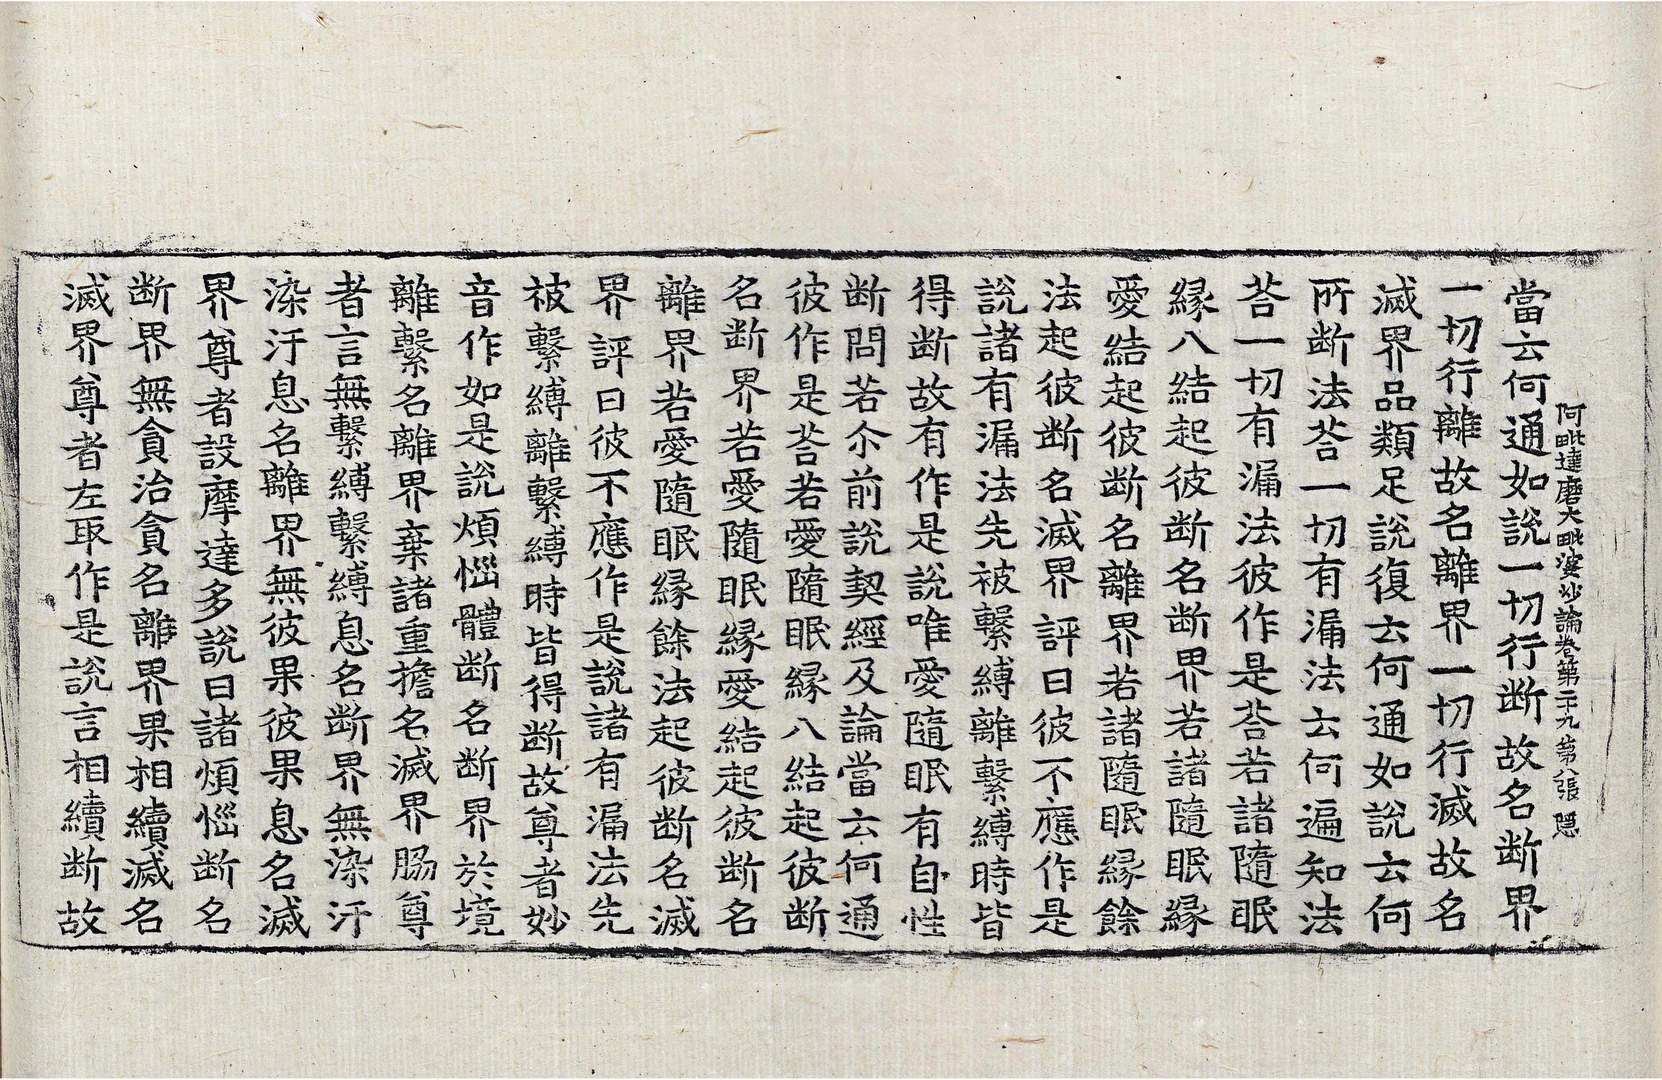 阿毗達磨大毗婆沙論卷第二十九 第八張 隱
當云何通如說一切行断故名断界
一切行離故名離界一切行滅故名
滅界品類足說復云何通如說云何
所断法荅一切有漏法云何遍知法
荅一切有漏法彼作是荅若諸隨眠
緣八結起彼断名断界若諸隨眠緣
愛結起彼断名離界若諸隨眠緣餘
法起彼断名滅界評曰彼不應作是
說諸有漏法先被繫縛離繫縛時皆
得断故有作是說唯愛隨眠有自性
断問若尒前說契經及論當云何通
彼作是荅若愛隨眠緣八結起彼断
名断界若愛隨眠緣愛結起彼断名
離界若愛隨眠緣餘法起彼断名滅
界評曰彼不應作是說諸有漏法先
被繫縛離繫縛時皆得断故尊者妙
音作如是說煩惱體断名断界於境
離繫名離界棄諸重擔名滅界脇尊
者言無繫縛繫縛息名断界無染汙
染汙息名離界無彼果彼果息名滅
界尊者設摩達多說曰諸煩惱断名
断界無貪治貪名離界果相續滅名
滅界尊者左取作是說言相續断故